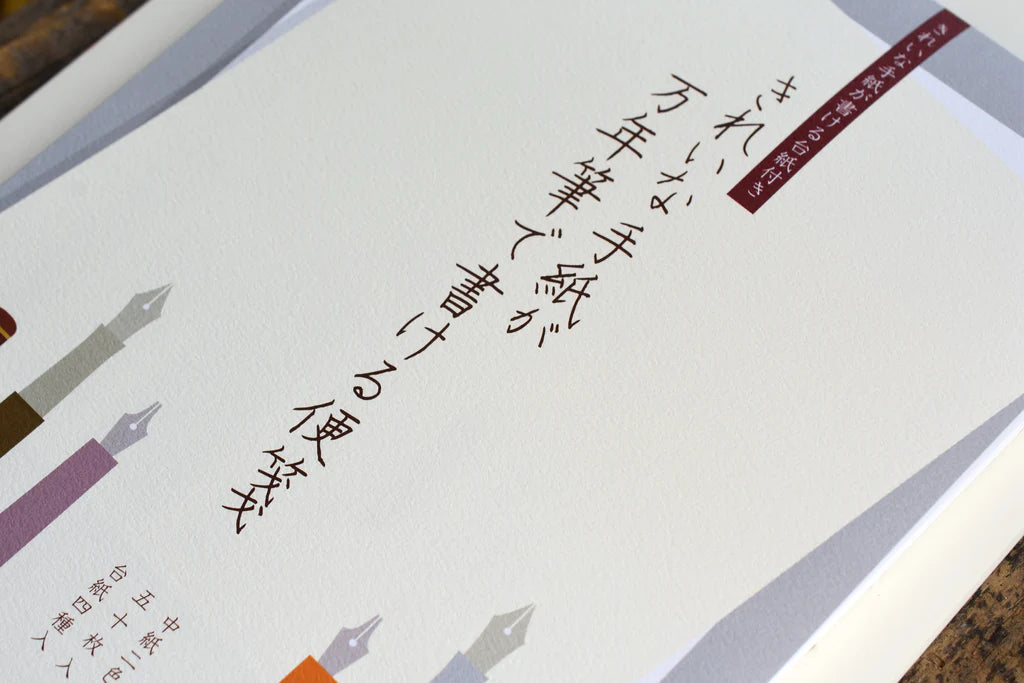 きれいな手紙が書ける台紙付き
きれいな手紙が
万年筆で書ける便箋
中紙二色
五十枚入
台紙四種入